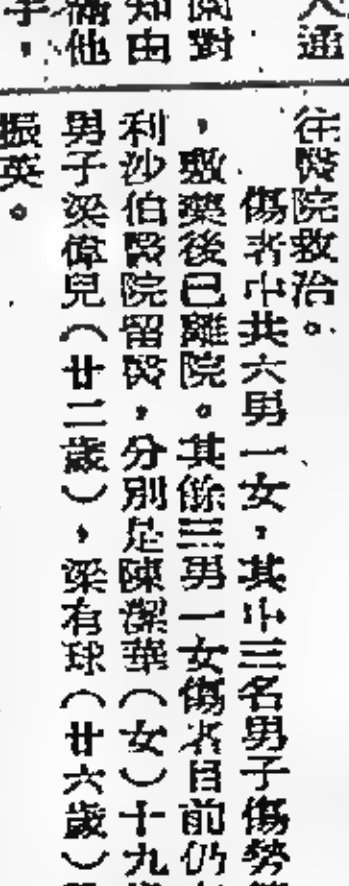 通
對
知由
他
往醫院救治。
傷者中共六男一女，其中三名男子傷勢
，敷藥後已離院。其餘三男一女傷者目前仍
利沙伯醫院留醫，分別是陳潔華（女）十九
男子梁偉兒（廿二歲），梁有球（廿六歲）
振英。